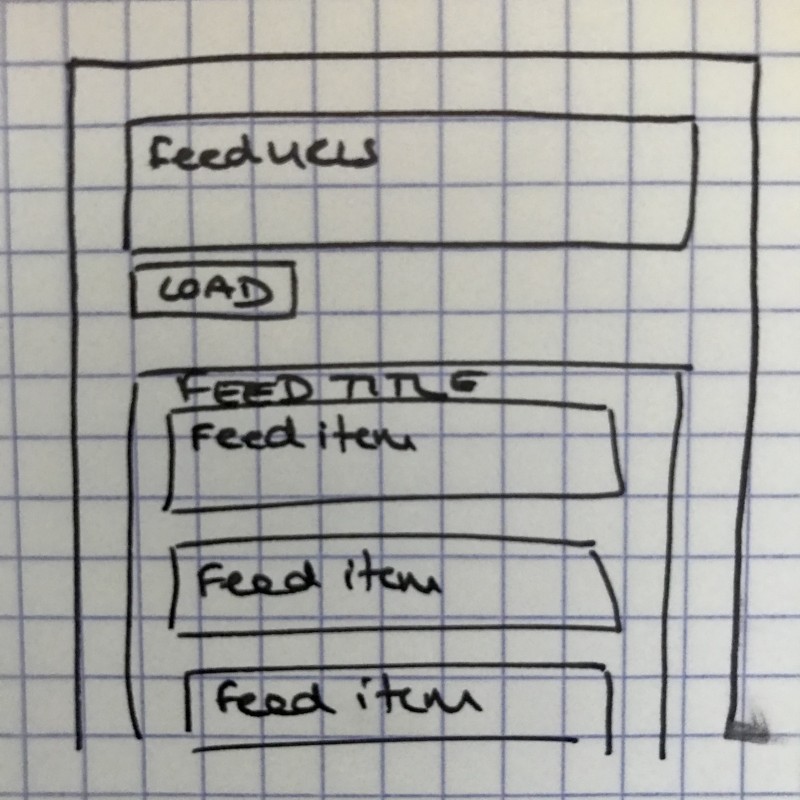 Feed URLs
LOAD
FEED TITLE
Feed item
Feed item
Feed item